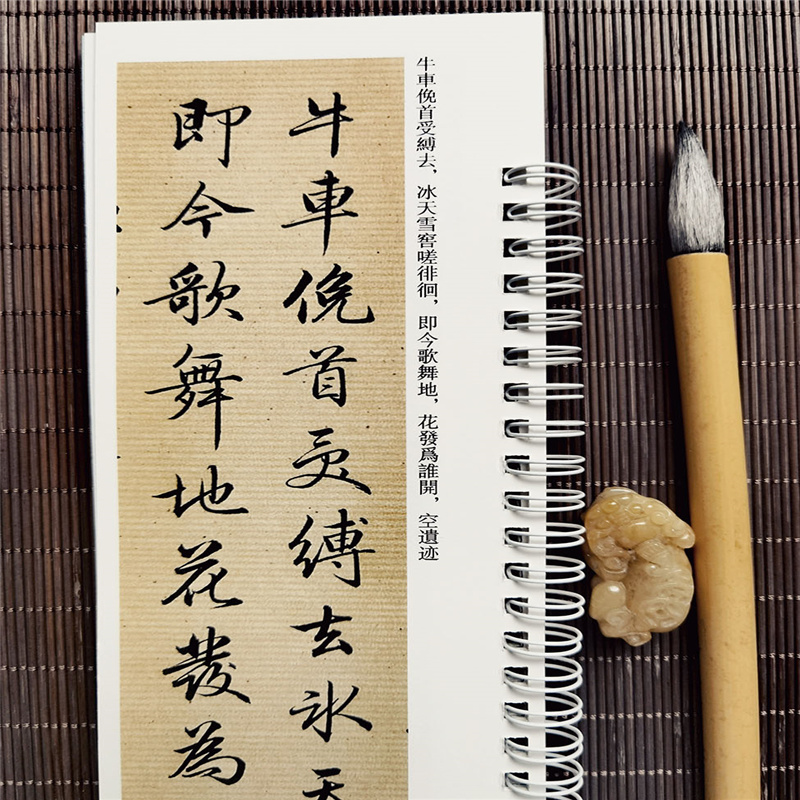 牛車俛首受縛去，冰天雪窖嗟徘徊，即今歌舞地，花發爲誰開，空遺迹
牛車俛首受縛去氷天
即今歌舞地花發為